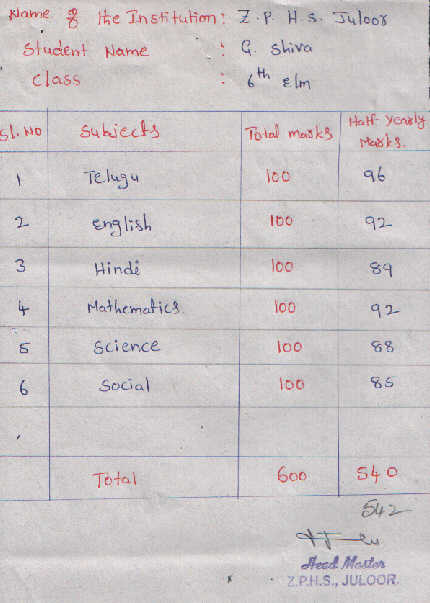 Name of the Institution: Z.P.H.S. Juloor
Student Name : G. Shiva
Class : 6th Elm
Sl. No Subjects Total marks Half yearly Marks.
1 Telugu 100 96
2 English 100 92
3 Hindi 100 89
4 Mathematics 100 92
5 Science 100 88
6 Social 100 85
Total 600 540
542
Head Master
Z.P.H.S., JULOOR.